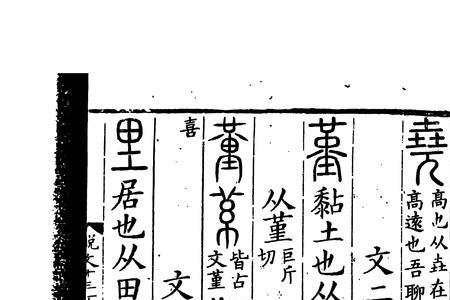 堯高也从垚在
高遠也吾聊
文二
堇黏土也从
从堇巨斤
切
皆古
文堇
喜
文
里居也从田
説文十三下